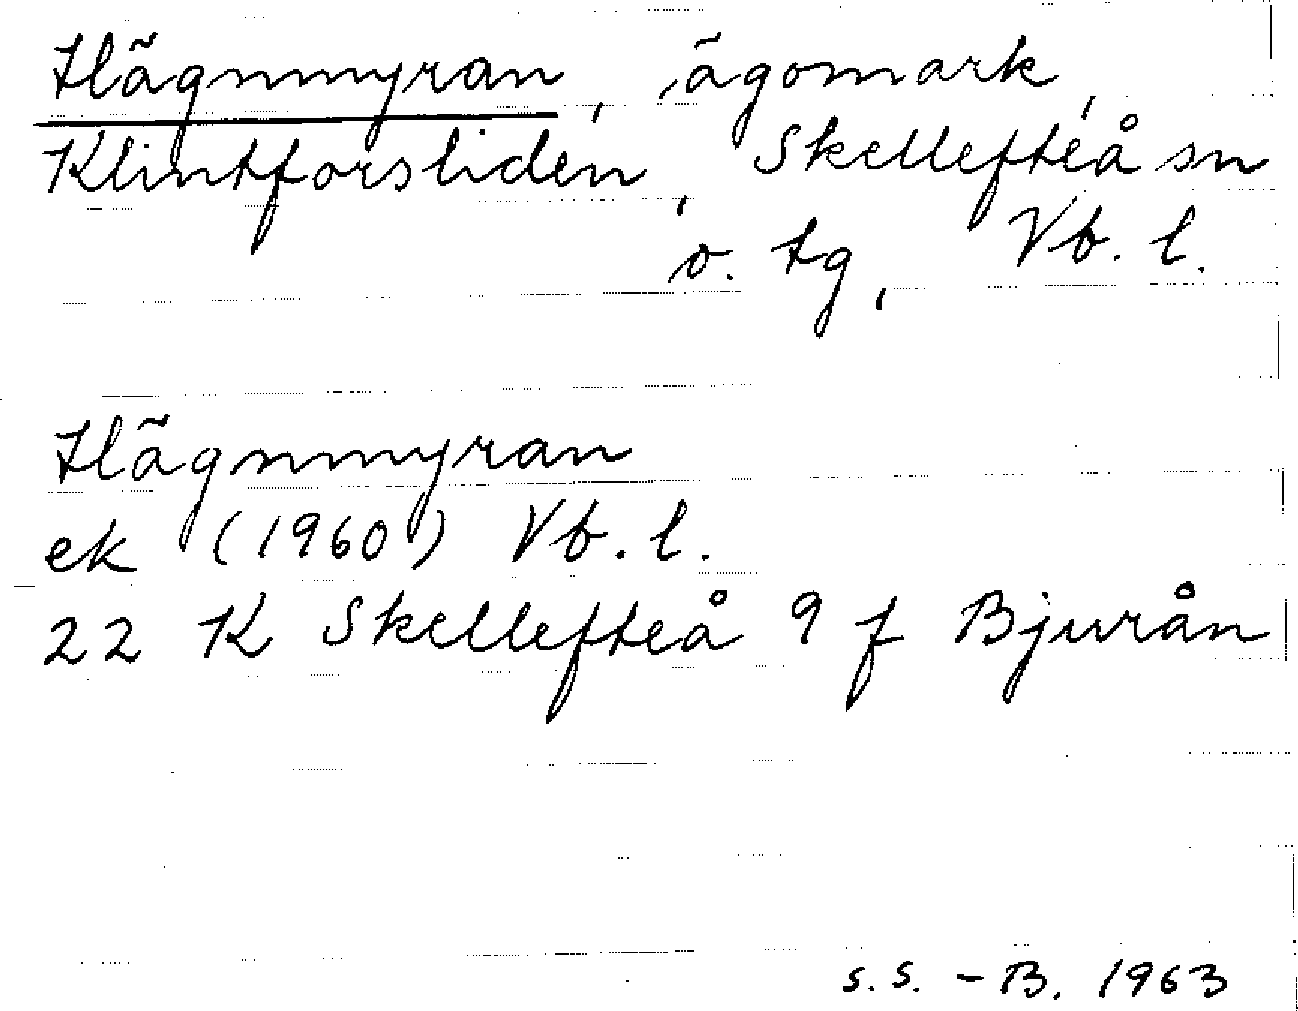 Hägnmyran, ägomark,
Klintforsliden, Skellefteå sn
o. tg, Vb. l.
Hägnmyran
ek (1960) Vb. l.
22 K Skellefteå 9 f Bjurån
S.S. - B. 1963